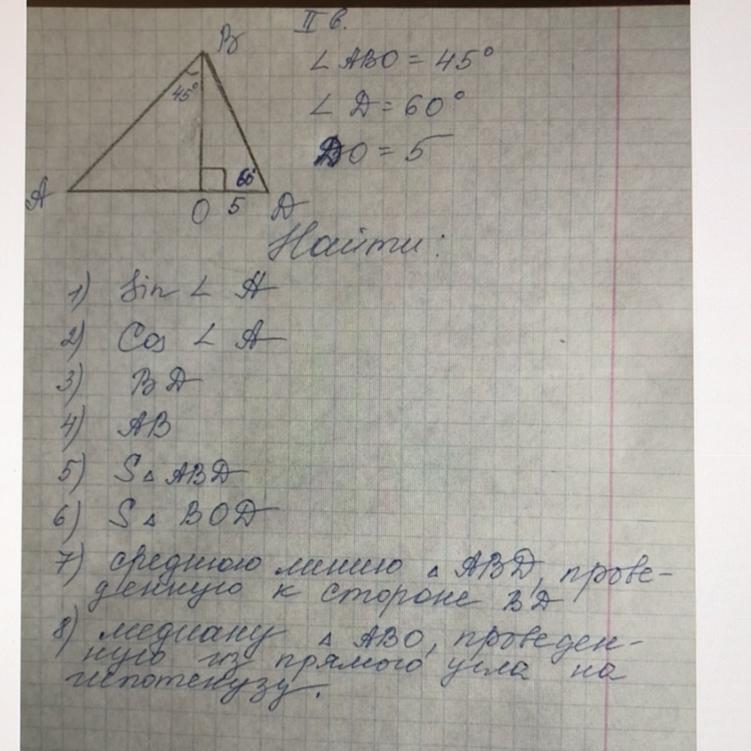 II в.
B
∠ ABO = 45°
45°
∠ D = 60°
DO = 5
60°
A
O 5 D
Найти:
1) Sin ∠ A
2) Cos ∠ A
3) BD
4) AB
5) S△ ABD
6) S△ BOD
7) среднюю линию △ ABD, прове-
денную к стороне BD
8) медиану △ ABO, проведен-
ную из прямого угла на
гипотенузу.